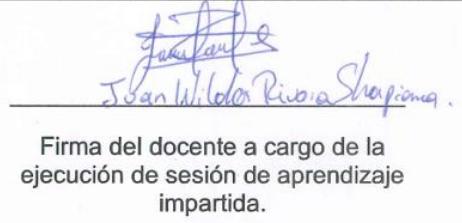 Juan Wilder Rivera Shapiama.
Firma del docente a cargo de la
ejecución de sesión de aprendizaje
impartida.